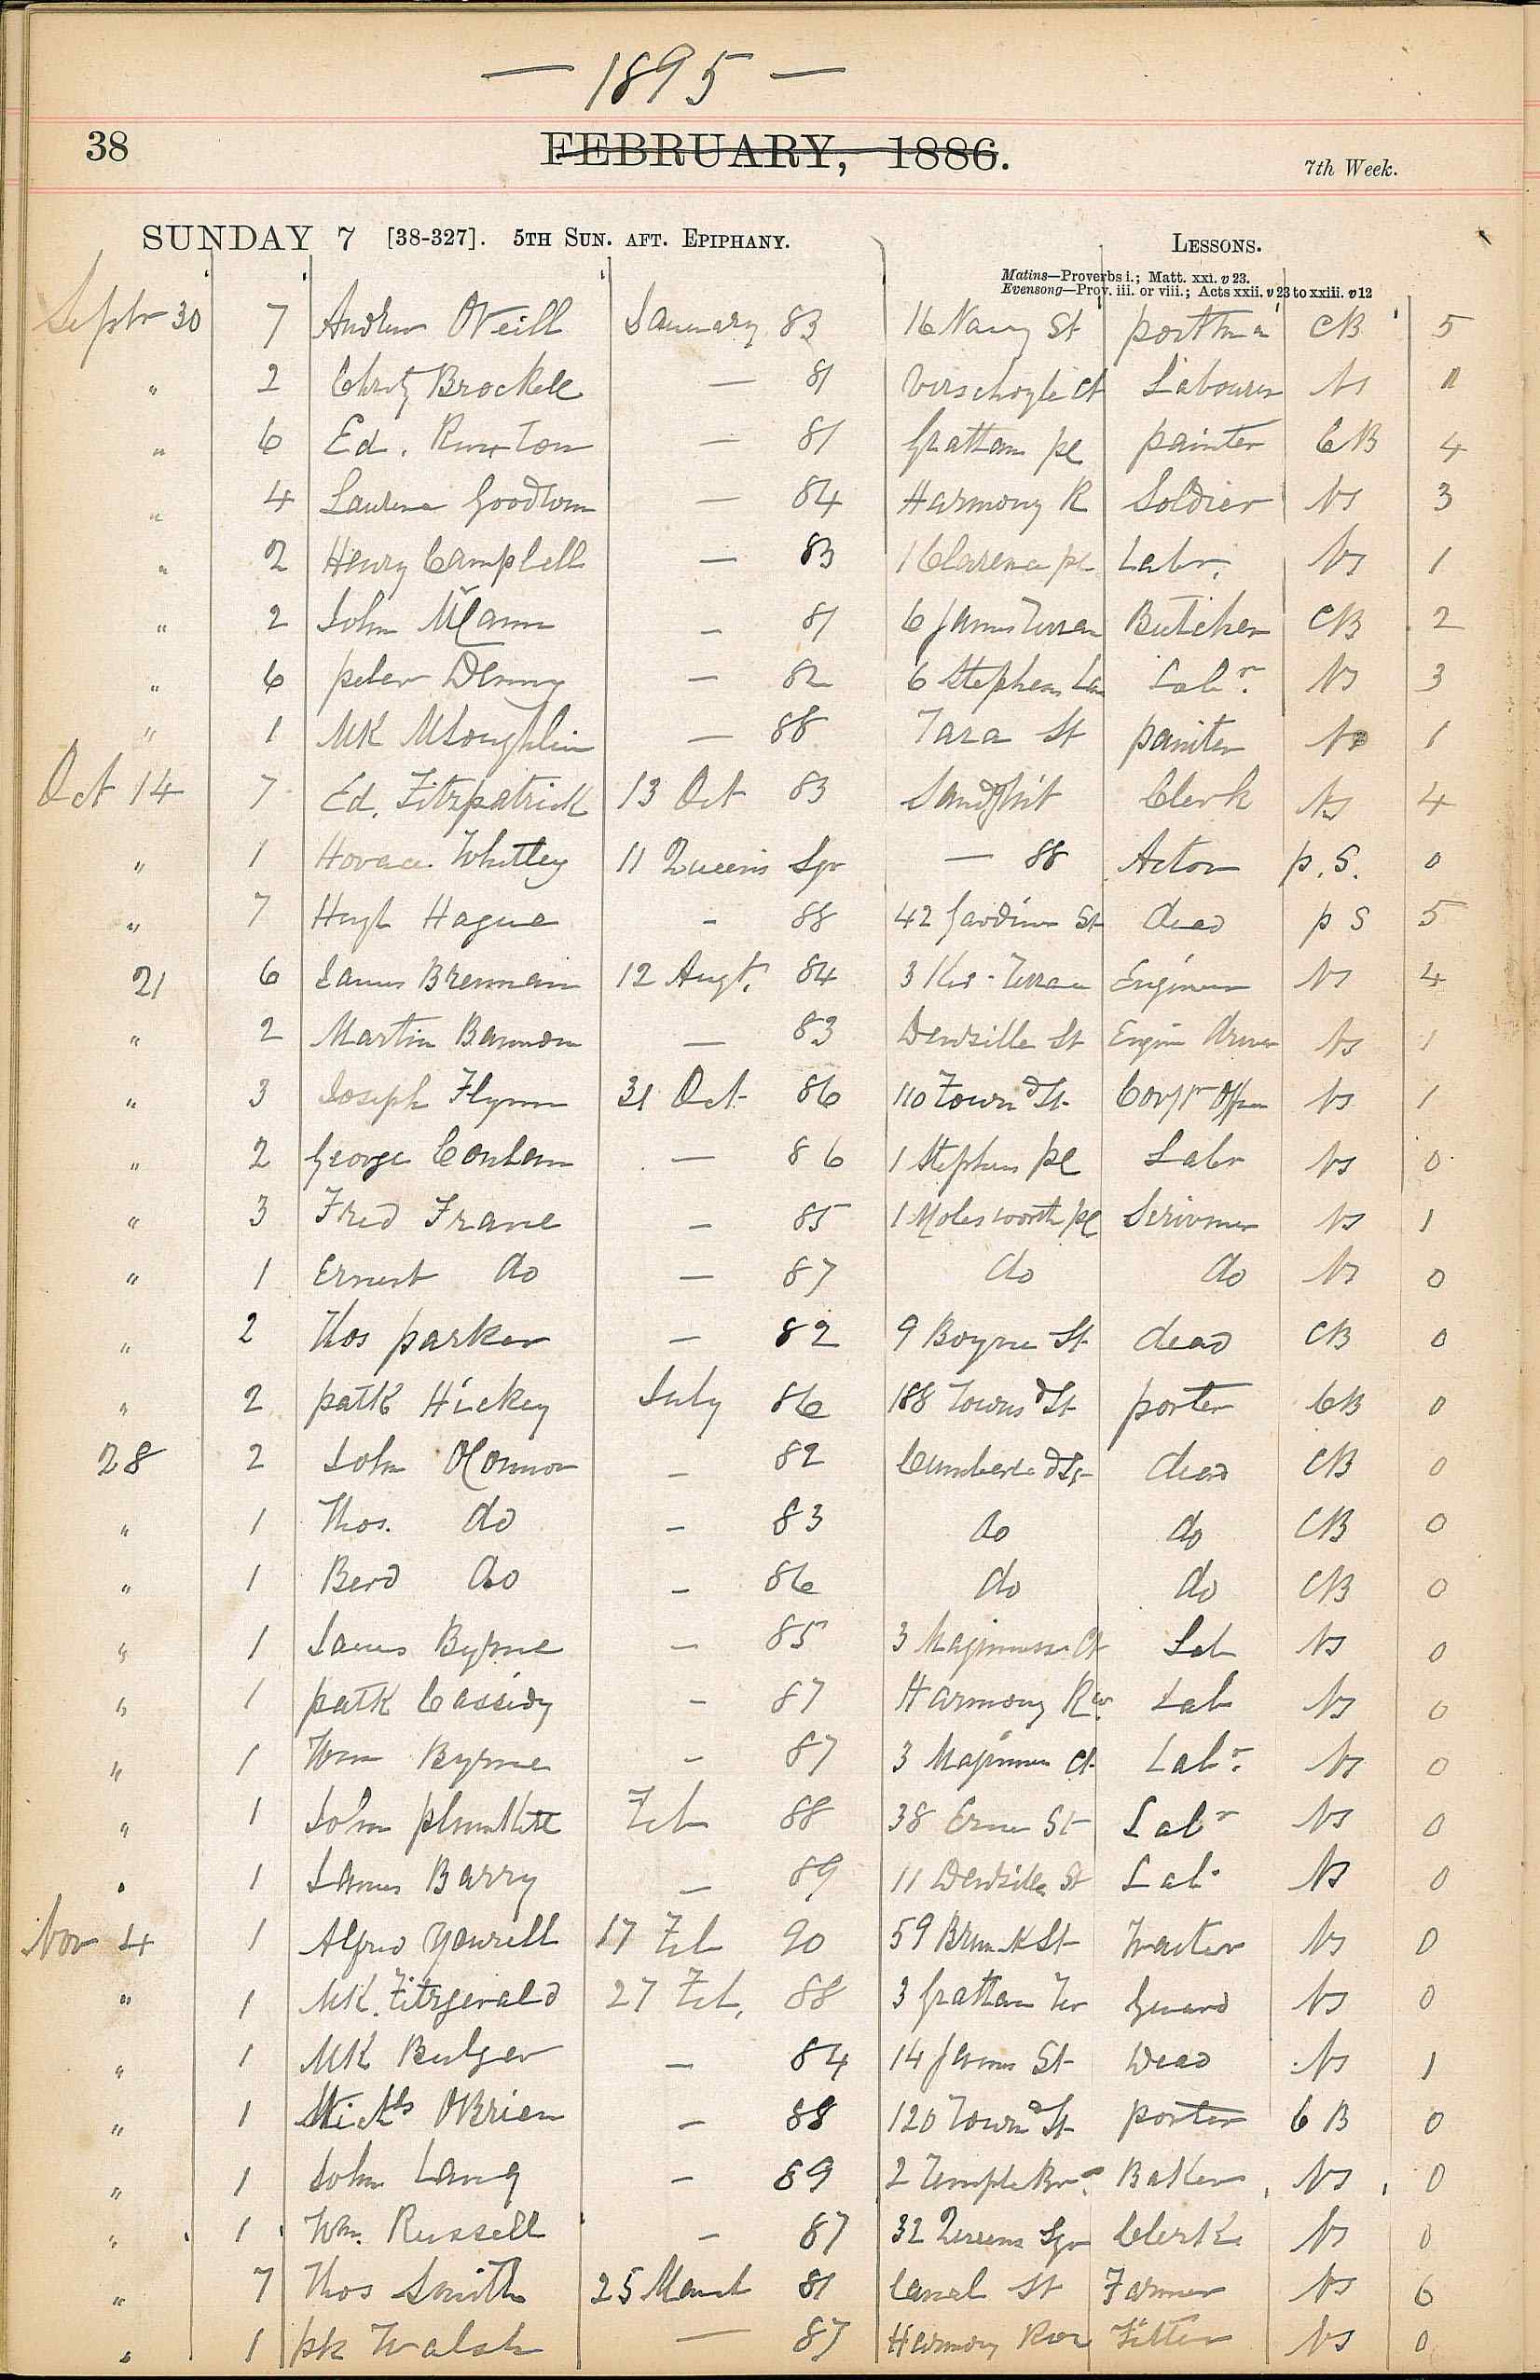 — 1895 —
38
FEBRUARY, 1886.
7th Week.
SUNDAY 7 [38-327]. 5TH SUN. AFT. EPIPHANY.
LESSONS.
Matins—Proverbs i.; Matt. xxi. v 23.
Evensong—Prov. iii. or viii.; Acts xxii. v 23 to xxiii. v 12
Septr 30 7 Andrew O'Neill January 83 16 Navy St CB 5
" 2 Christy Brockell — 81 Verschoyle Ct Labourer Ns "
" 6 Ed. Ruxton — 81 Grattan pl painter CB 4
" 4 Laurence Goodwin — 84 Harmony R Soldier Ns 3
" 2 Henry Campbell — 83 1 Clarence pl Labr. Ns 1
" 2 John McCann — 81 6 James Terrace Butcher CB 2
" 6 peter Denny — 82 6 Stephens Lan Labr. Ns 3
" 1 MK McLoughlin — 88 Tara St painter Ns 1
Oct 14 7 Ed. Fitzpatrick 13 Oct 83 Clerk Ns 4
" 1 Horace Whitley 11 Queens Sqr — 88 Actor p.S. 0
" 7 Hugh Hague - 88 42 Gardiner St dead p S 5
21 6 James Brennan 12 Augt. 84 3 Terrace Engineer Ns 4
" 2 Martin Bannon — 83 Denzille St Engin driver Ns 1
" 3 Joseph Flynn 31 Oct 86 110 Townd St Ns 1
" 2 George Conlan — 86 1 Stephens pl Labr Ns 0
" 3 Fred Frane — 85 1 Molesworth pl Scrivener Ns 1
" 1 Ernest do — 87 do do Ns 0
" 2 Thos parker — 82 9 Boyne St dead CB 0
" 2 patk Hickey July 86 188 Townsd St porter CB 0
28 2 John O'Connor — 82 dead CB 0
" 1 Thos. do — 83 do do CB 0
" 1 Berd do — 86 do do CB 0
" 1 James Byrne — 85 3 Ct Lab Ns 0
" 1 patk Cassidy — 87 Harmony Rw. Lab Ns 0
" 1 Wm Byrne — 87 3 Ct Labr. Ns 0
" 1 John plunkett Feb 88 38 Erne St Labr Ns 0
" 1 James Barry — 89 11 Denzille St Lab. Ns 0
Nov 4 1 Alfred Yourell 17 Feb 90 59 Brunk St Ns 0
" 1 MK. Fitzgerald 27 Feb. 88 3 Grattan Ter Guard Ns 0
" 1 MK Bulger — 84 14 James St Dead Ns 1
" 1 Michls O'Brien — 88 120 Townd St porter CB 0
" 1 John Lang — 89 2 Temple Baker Ns 0
" 1 Wm. Russell — 87 32 Queens Sqr Clerk Ns 0
" 7 Thos Smith 25 March 81 Canal St Farmer Ns 6
" 1 pk Walsh — 87 Harmony Row Fitter Ns 0